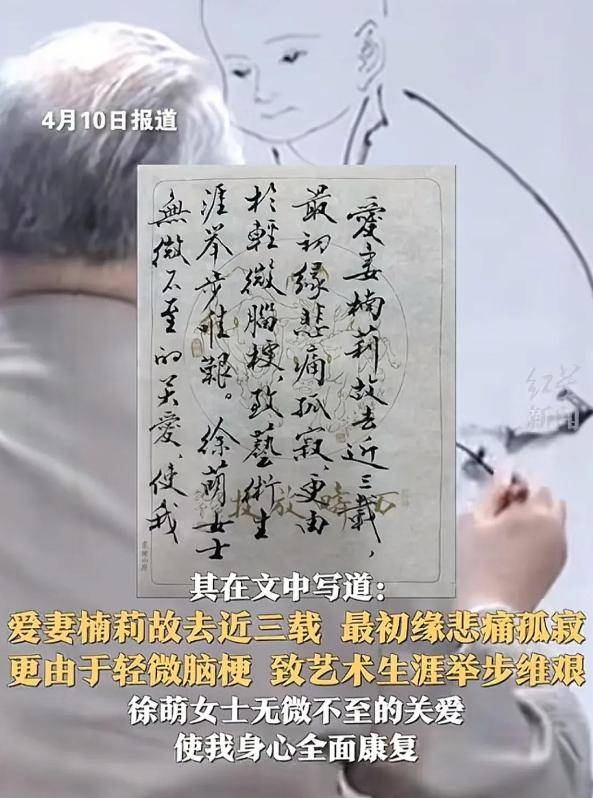 4月10日报道
愛妻楠莉故去近三載，
最初缘悲痛孤寂，更由
於輕微腦梗，致藝術生
涯举步唯艱。徐萌女士
無微不至的关爱，使我
红星
新闻
其在文中写道：
爱妻楠莉故去近三载 最初缘悲痛孤寂
更由于轻微脑梗 致艺术生涯举步维艰
徐萌女士无微不至的关爱
使我身心全面康复